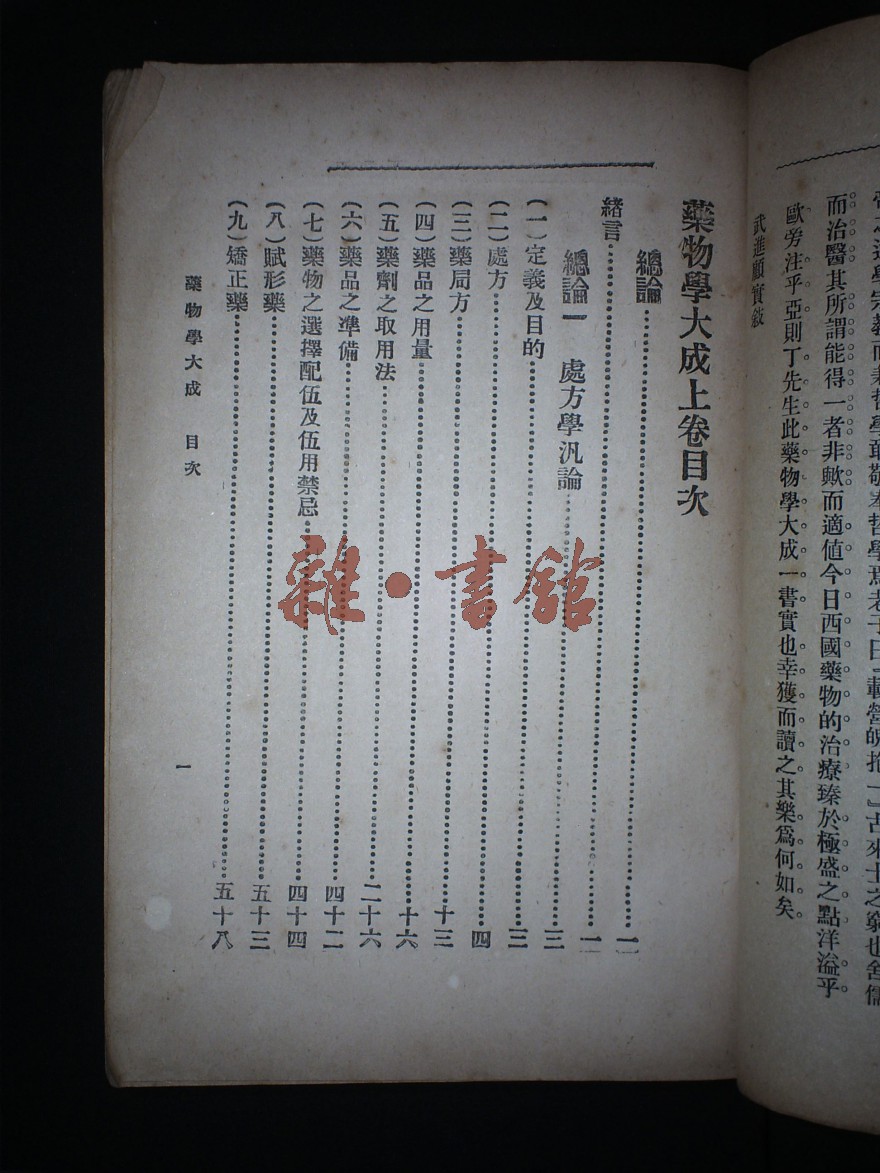 而治醫其所謂能得一者非歟而適値今日西國藥物的治療臻於極盛之點洋溢乎
歐旁注乎亞則丁先生此藥物學大成一書實也幸獲而讀之其樂爲何如矣
武進顧實敍
藥物學大成上卷目次
總論……一
緒言……一
總論一 處方學汎論……三
(一)定義及目的……三
(二)處方……四
(三)藥局方……十三
(四)藥品之用量……十六
(五)藥劑之取用法……二十六
(六)藥品之準備……四十二
(七)藥物之選擇配伍及伍用禁忌……四十四
(八)賦形藥……五十三
(九)矯正藥……五十八
藥物學大成 目次
一
雜·書館